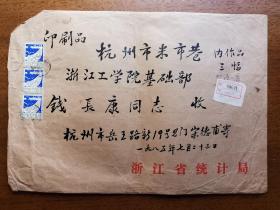 印刷品
杭州市米市巷
浙江工学院基础部
钱長康同志 收
内作品
三幅
杭州市岳王路新19号8门宋德甫寄
一九八五年七月二十三日
浙江省统计局